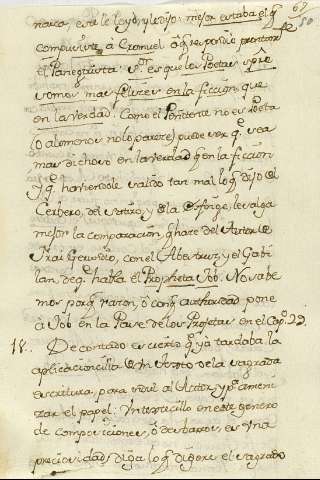 67
50
narca, este le leyó, y le dijo: mejor estaba el q̃
compusiste à Cromuel à q̃ respondió prontam.te
el Panegirista: S.or es que los Poetas spre
somos mas felizes en la ficcion, que
en la verdad. Como el Penitente no es Poeta
(o alomenos no lo parece) puede ver q̃ sea
mas dichoso en la verdad q̃ en la ficcion
y q̃ haviendole valido tan mal lo q̃ dijo del
Cerbero, del vestiro, y de la Esfinge, le valga
mejor la comparacion, q̃ hace del Autor de
Frai Gerundio, con el Abestruz, y el Gabi
lan, de q.n habla el Propheta Job. No sabe
mos por q̃ razon, ò con q̃ authoridad pone
à Job en la Parte de los Profetas en el Cap.o 29.
18.. De contado es cierto q̃ ya tardaba la
aplicacioncilla de un Texto de la sagrada
escritura, para herir al Autor, y p.a ameni
zar el papel: Un textecillo en este genero
de composiciones, ò desbarros, es una
preciosidad, diga lo q̃ digere el sagrado